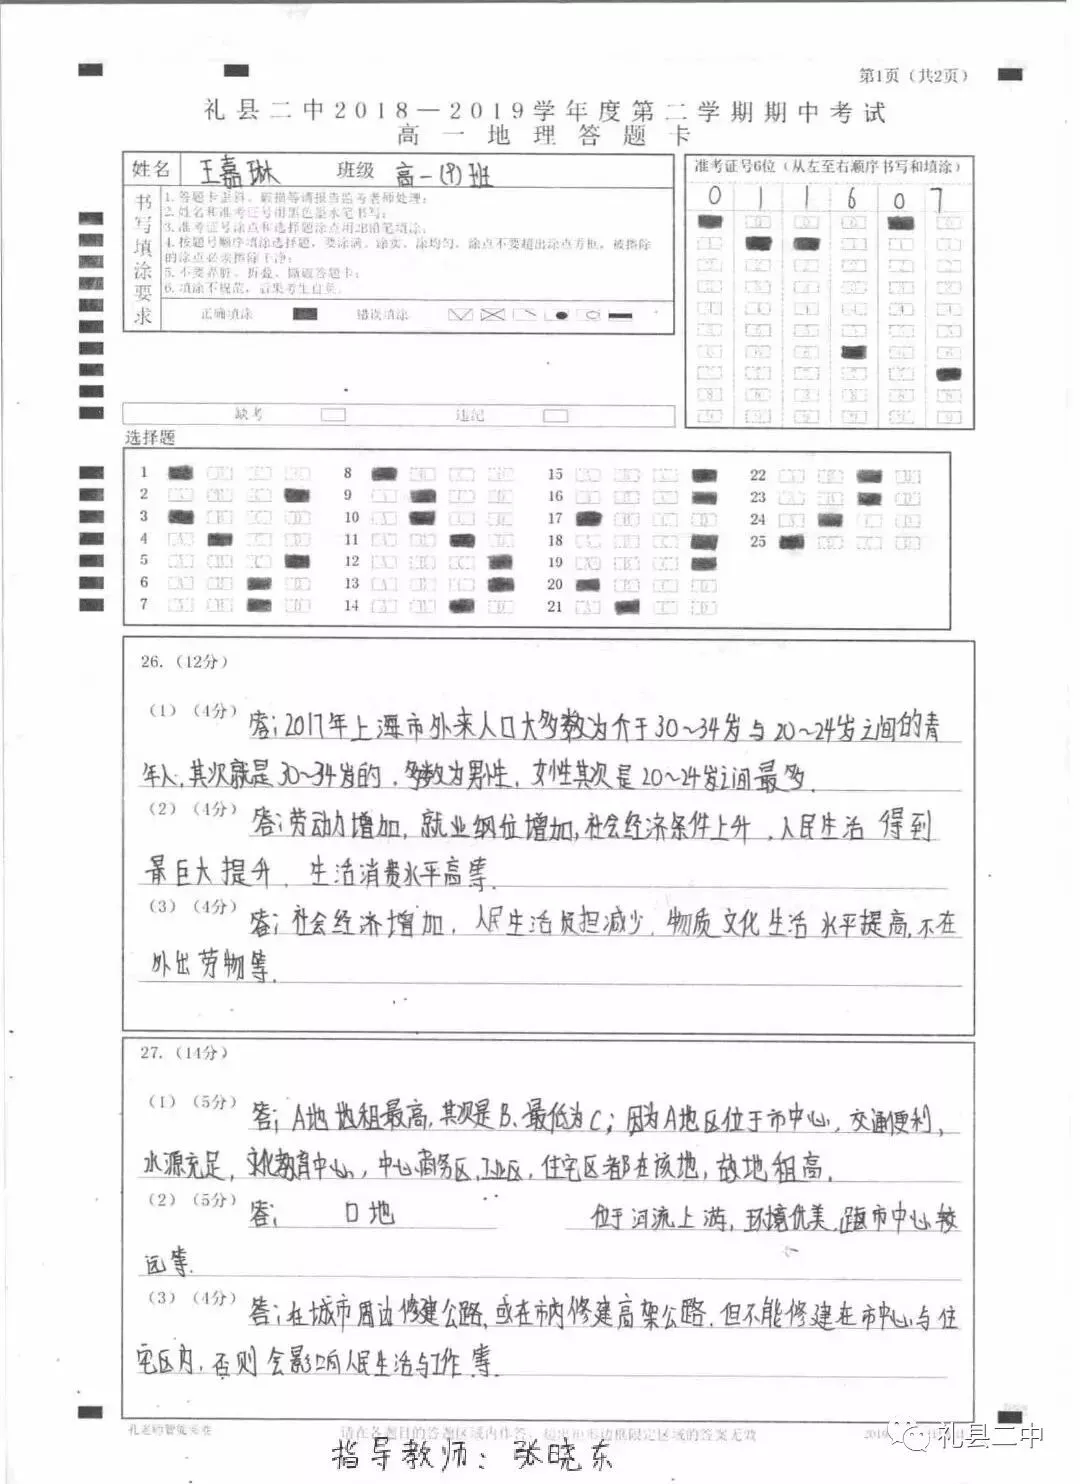 第1页（共2页）
礼县二中2018—2019学年度第二学期期中考试
高一地理答题卡
姓名 王嘉琳 班级 高一(9)班
书写填涂要求
2.姓名和准考证号用黑色墨水笔书写;
3.准考证号涂点和选择题涂点用2B铅笔填涂;
4.按题号顺序填涂选择题，要涂满、涂实、涂均匀，涂点不要超出涂点方框，被擦除
的涂点必须擦除干净;
5.不要弄脏、折叠、撕破答题卡;
6.填涂不规范，后果考生自负。
正确填涂 错误填涂
准考证号6位（从左至右顺序书写和填涂）
0 1 1 6 0 7
缺考 违纪
选择题
1 8 15 22
2 9 16 23
3 10 17 24
4 11 18 25
5 12 19
6 13 20
7 14 21
26.（12分）
（1）（4分）答:2017年上海市外来人口大多数为介于30~34岁与20~24岁之间的青
年人,其次就是30~34岁的,多数为男性,女性其次是20~24岁之间最多.
（2）（4分）答:劳动力增加,就业纲位增加,社会经济条件上升,人民生活得到
最巨大提升,生活消费水平高等.
（3）（4分）答:社会经济增加,人民生活负担减少,物质文化生活水平提高,不在
外出劳物等.
27.（14分）
（1）（5分）答;A地地租最高,其次是B,最低为C;因为A地区位于市中心,交通便利,
水源充足,文化教育中心,中心商务区,工业区,住宅区都在该地,故地租高.
（2）（5分）答; 口地 位于河流上游,环境优美,距市中心较
远等.
（3）（4分）答:在城市周边修建公路,或在市内修建高架公路.但不能修建在市中心与住
宅区内,否则会影响人民生活与工作等.
请在各题目的答题区域内作答，超出矩形边框限定区域的答案无效
礼县二中
指导教师:张晓东